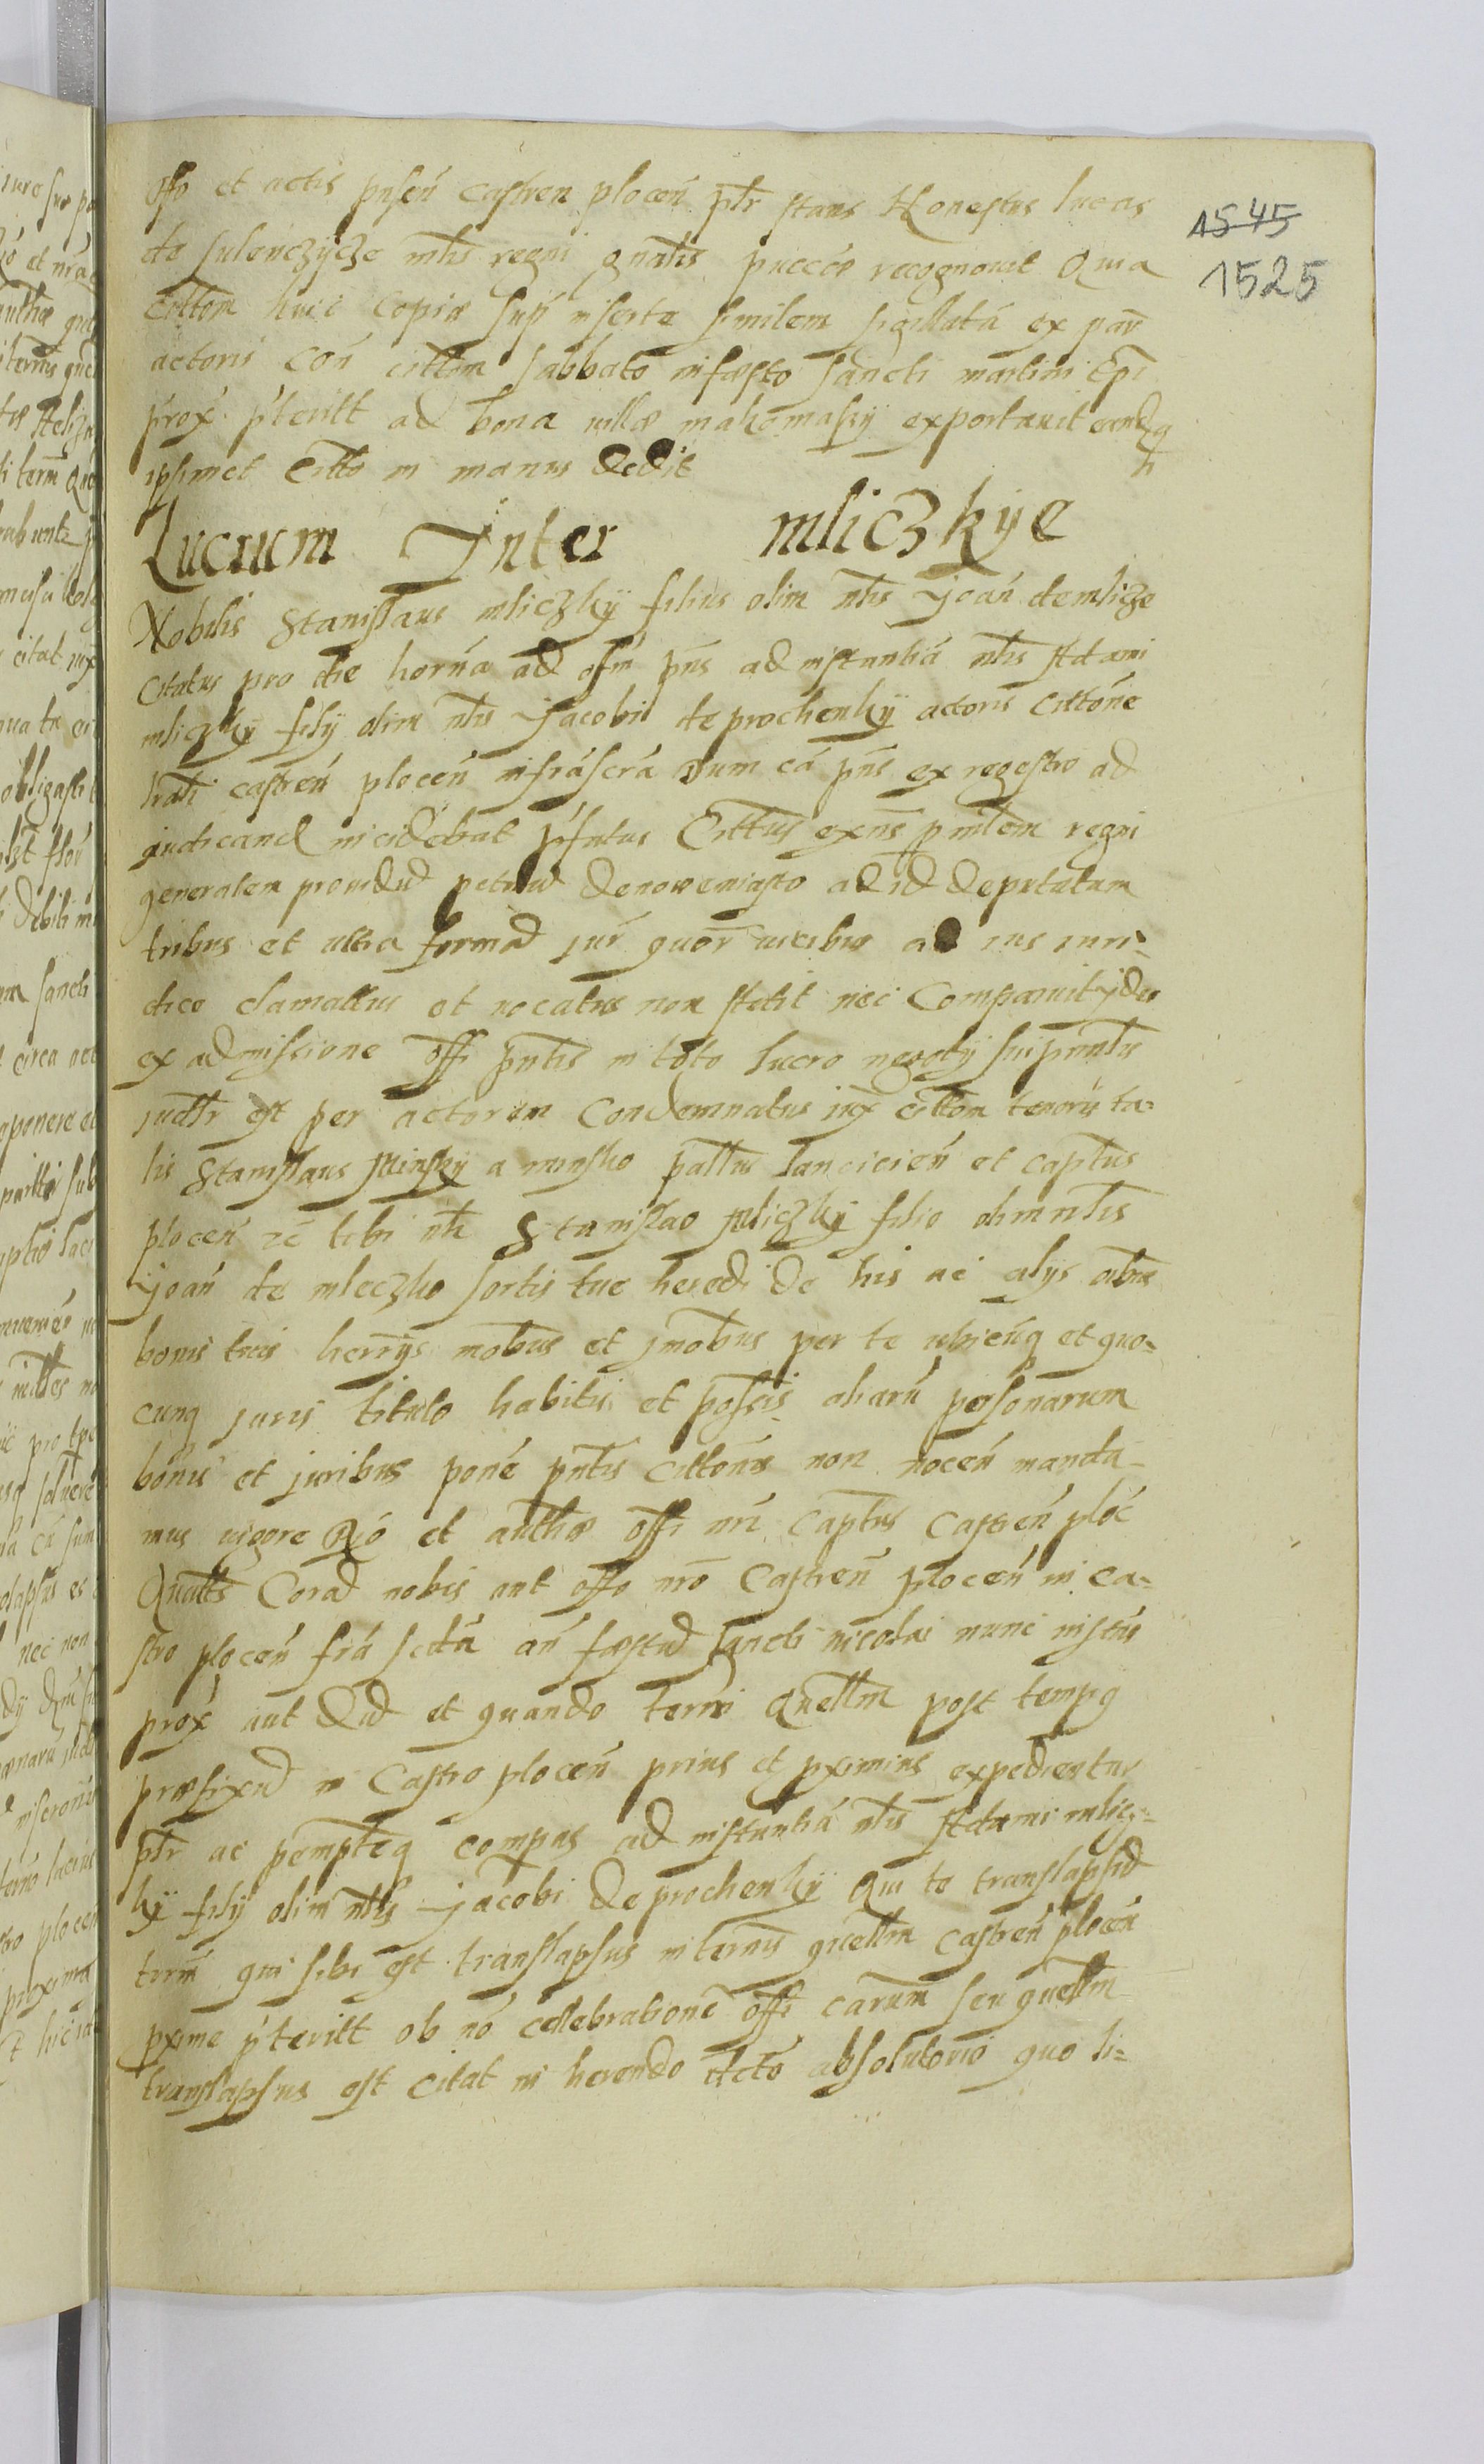 offo et actis pnsen castren plocen pltr stans Honestus lucas
de sulenczycze mlis regni gnalis puccor recognouit Qua
cittom huic copiæ supr inserte similem sigillatã ex par
actoris con cittem sabbato in fæsto sancti martini Epi
prox pterilt ad bona villæ makomasky exportauit eandzq
ipsimet Citto in manus dedit
Lucrum Inter mliczkye
Nobilis Stanislaus mliczkÿ filius olim nlis Joan de mlicze
citatus pro die horna ad ofm pns ad instantiã nlis Adami
mliczkÿ filÿ olim nlis Jacobi de prochenkÿ actoris cittone
lrali castren plocen infrascra dum cã pns ex regestro ad
iudicand incidebat pfatus Cittus exns pmlem regni
generalem prouidud petrud de noweniasto ad id deputatum
tribus et ultra formad jur quor uicibus ad ius iuri-
dice clamattus et uocatus non stetit nec Comparuit ydeo
ex admissione offi pntis in toto lucro negotÿ sui pntis
judltr est per actorem Condemnatus jux cittom tenoris ta-
lis Stanislaus Minsky a minsko pallus lancicien et captus
plocen zc tibi nli Stanislao Mliczkÿ filio olim nlis
Joan de mleczko sortis tue heredi de his ac alÿs oibus
bonis tuis herrÿs mobus et jmobus per te ubicunq et quo-
cunq juris titulo habitis et possis aliarũ personarum
bonis et juribus pone pntis cittonis non nocen manda-
mus uigore Rio et authæ offi nri captus castren ploc
Quatts Corad nobis aut offo nro Castren plocen in ca-
stro plocen fria scda an fæstud sancti nicolai nunc instan
prox aut dud et quando termi Quellm post tempq
præfixud in Castro plocen prius et pximius expedientur
pltr ac pempteq compas ad instantiã nlis Adami mlicz-
kÿ filÿ olim nlis Jacobi de prochenkÿ Qui te translapsid
termi qui sibi est translapsus in termis quellm castren plocen
pxime pterilt ob no cellebratione offi carum seu quellm
translapsus est citat in herendo dcto absolutorio quo li-
1545
1525